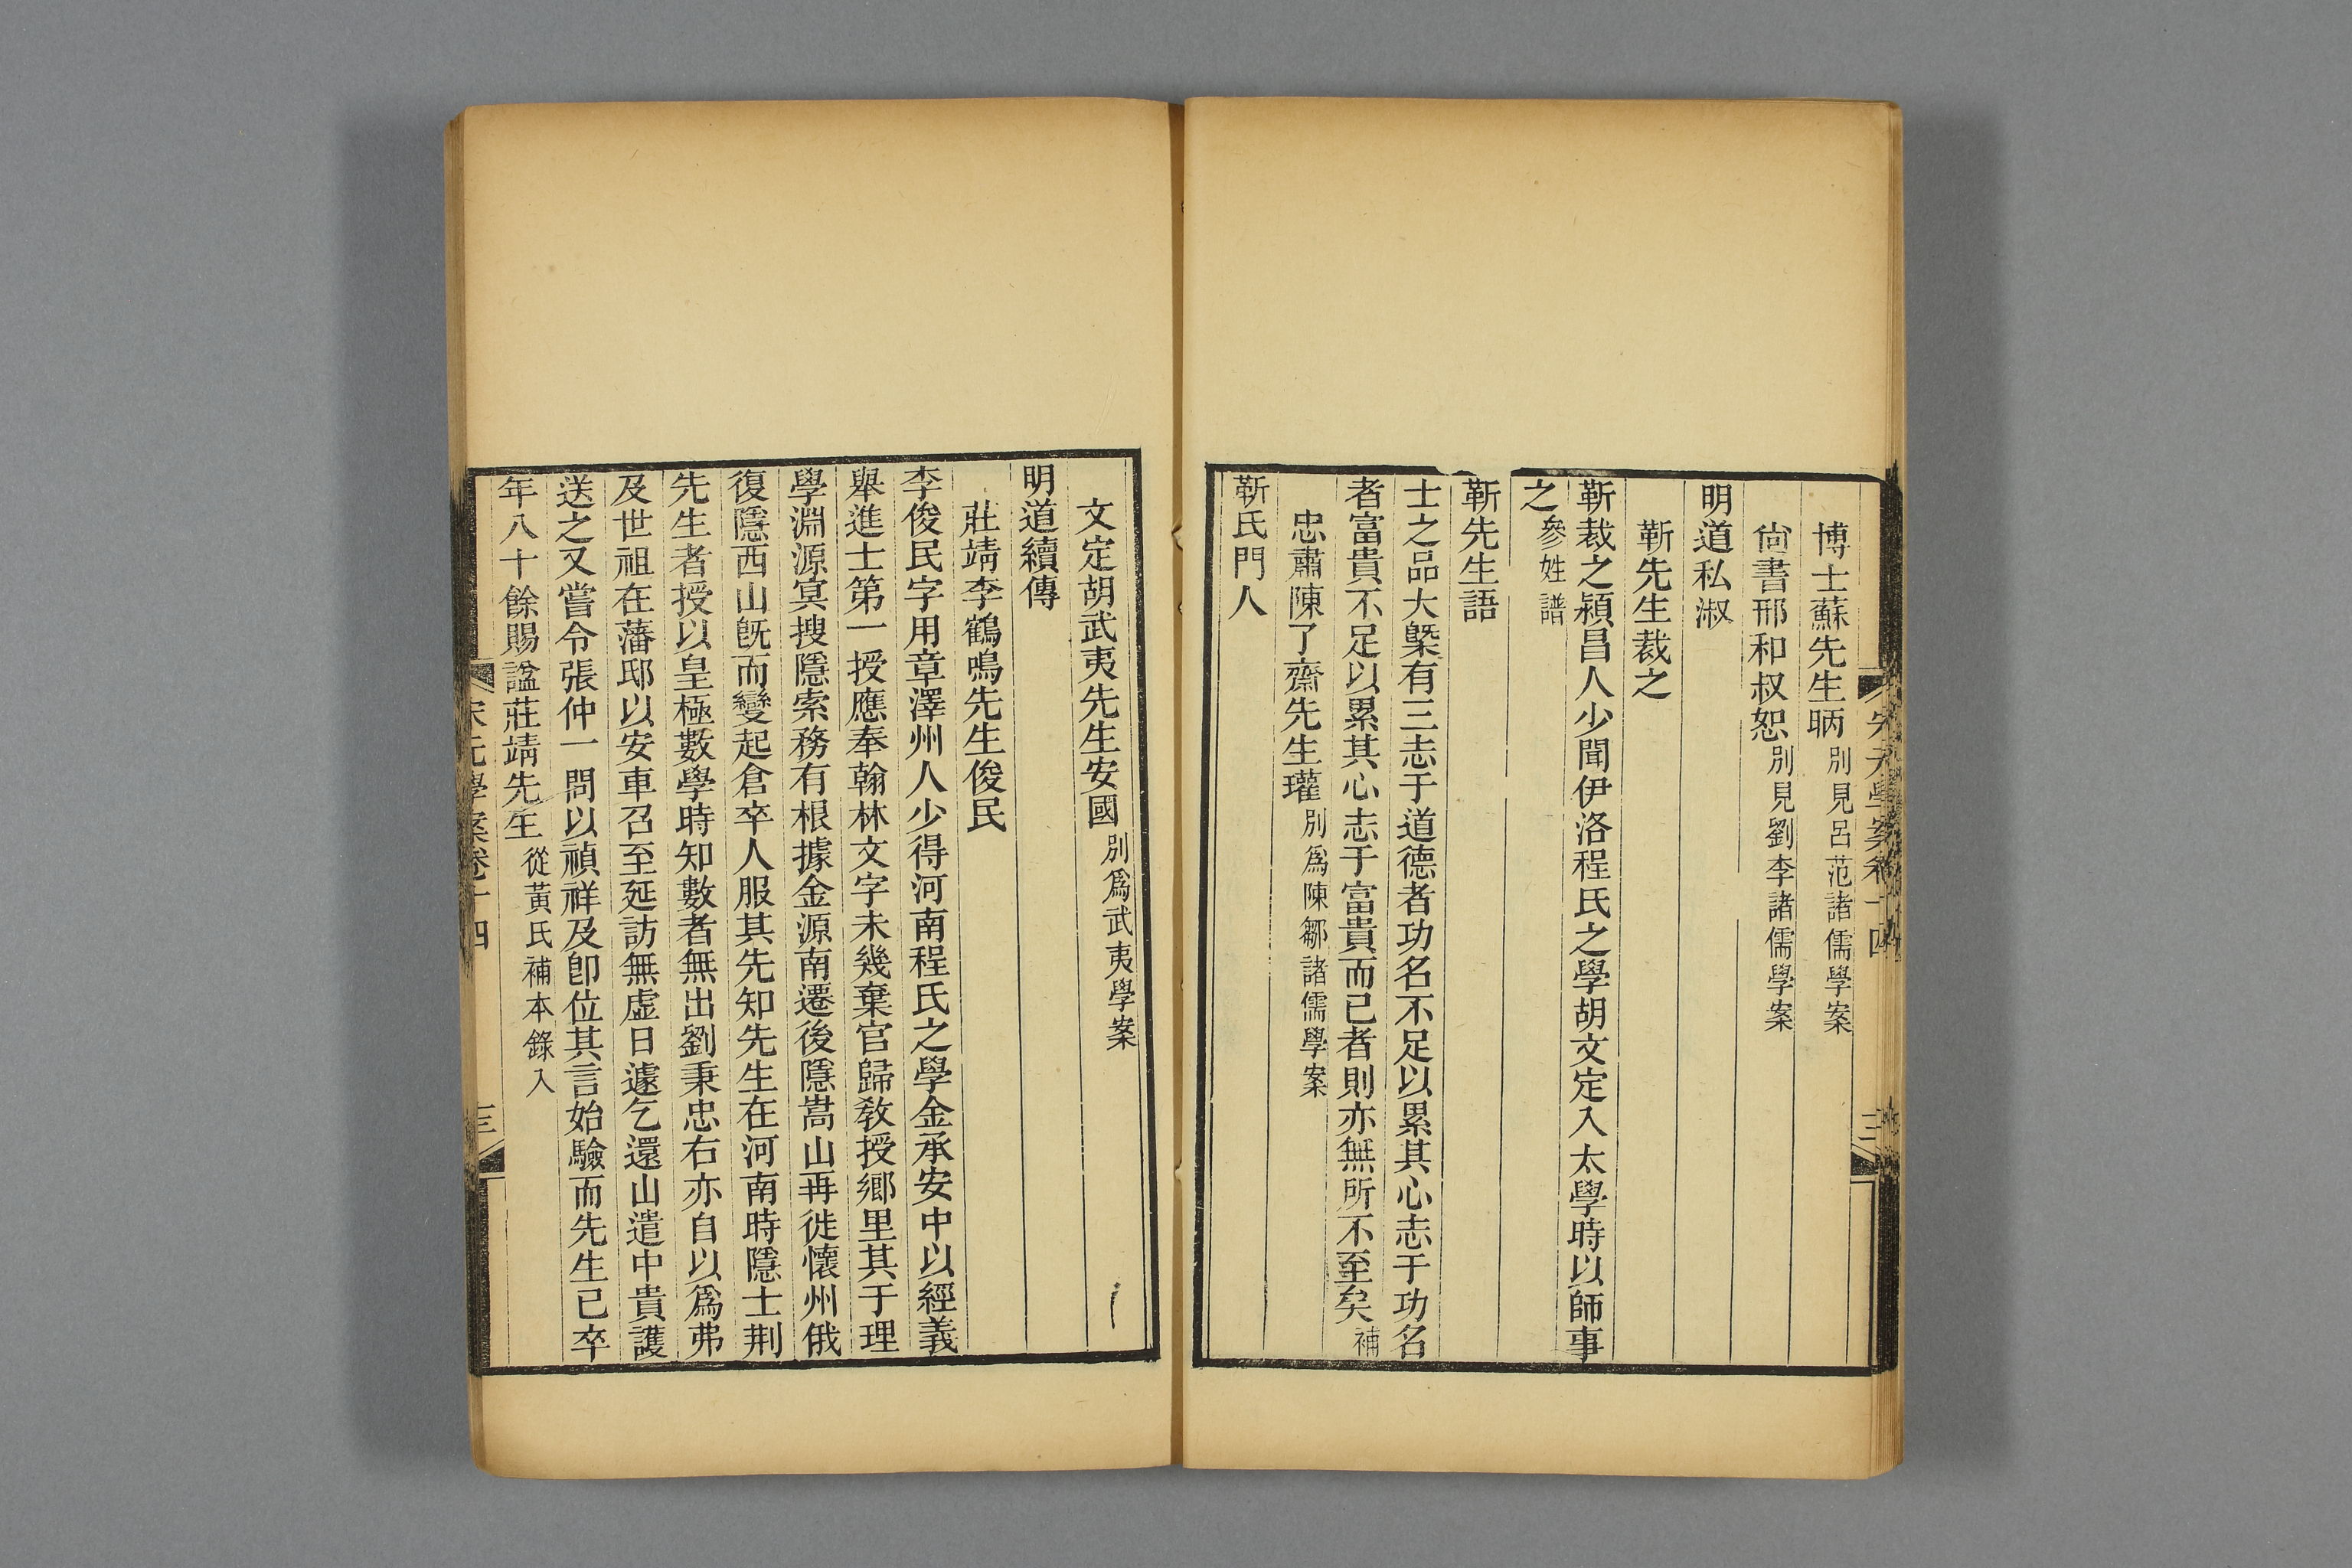 博士蘇先生昞別見呂范諸儒學案
尙書邢和叔恕別見劉李諸儒學案
明道私淑
靳先生裁之
靳裁之潁昌人少聞伊洛程氏之學胡文定入太學時以師事
之參姓譜
靳先生語
士之品大槩有三志于道德者功名不足以累其心志于功名
者富貴不足以累其心志于富貴而已者則亦無所不至矣補
忠肅陳了齋先生瓘別爲陳鄒諸儒學案
靳氏門人
文定胡武夷先生安國別爲武夷學案
明道續傳
莊靖李鶴鳴先生俊民
李俊民字用章澤州人少得河南程氏之學金承安中以經義
舉進士第一授應奉翰林文字未幾棄官歸敎授鄉里其于理
學淵源冥搜隱索務有根據金源南遷後隱嵩山再徙懷州俄
復隱西山旣而變起倉卒人服其先知先生在河南時隱士荆
先生者授以皇極數學時知數者無出劉秉忠右亦自以爲弗
及世祖在藩邸以安車召至延訪無虛日遽乞還山遣中貴護
送之又嘗令張仲一問以禎祥及卽位其言始驗而先生已卒
年八十餘賜謚莊靖先生從黃氏補本錄入
宋元學案卷十四
三